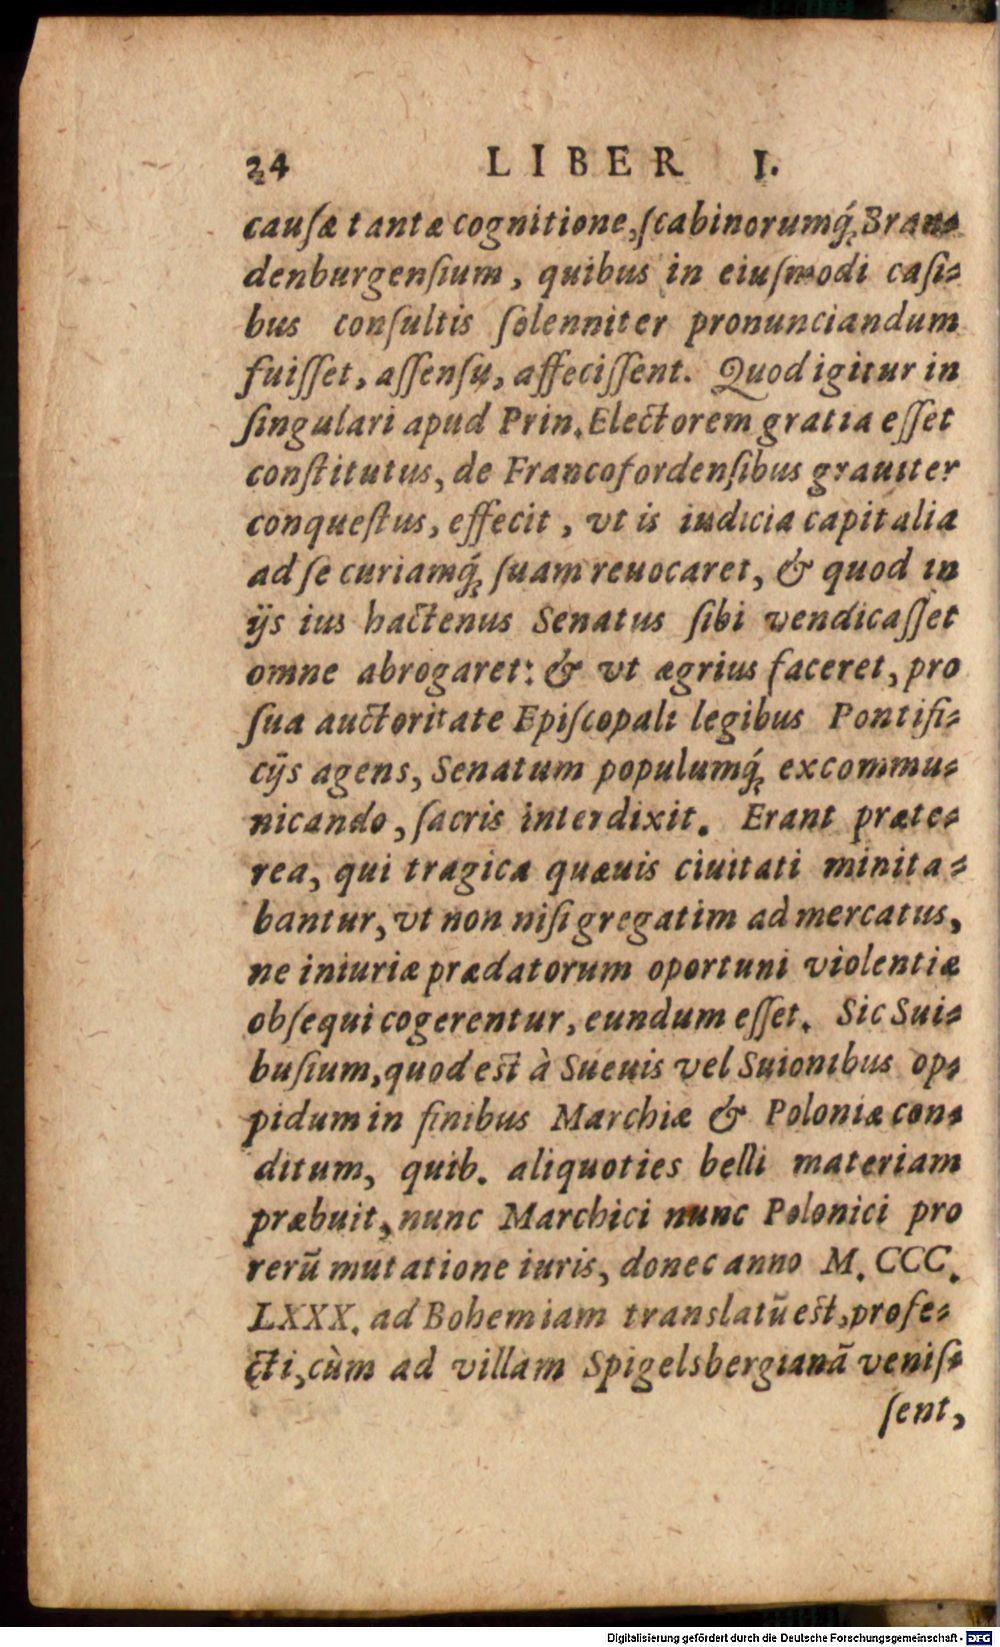 24 LIBER I.
cauſæ tantæ cognitione, ſcabinorumq́; Bran-
denburgenſium, quibus in eiuſmodi caſi-
bus conſultis ſolenniter pronunciandum
fuiſſet, aſſenſu, affeciſſent. Quod igitur in
ſingulari apud Prin. Electorem gratia eſſet
conſtitutus, de Francofordenſibus grauiter
conqueſtus, effecit, vt is iudicia capitalia
ad ſe curiamq́; ſuam reuocaret, & quod in
ijs ius hactenus Senatus ſibi vendicaſſet
omne abrogaret: & vt ægrius faceret, pro
ſua auctoritate Epiſcopali legibus Pontifi-
cijs agens, Senatum populumq́; excommu-
nicando, ſacris interdixit. Erant præte-
rea, qui tragica quæuis ciuitati minita-
bantur, vt non niſi gregatim ad mercatus,
ne iniuriæ prædatorum oportuni violentiæ
obſequi cogerentur, eundum eſſet. Sic Sui-
buſium, quod est à Sueuis vel Suionibus op-
pidum in finibus Marchiæ & Poloniæ con-
ditum, quib. aliquoties belli materiam
præbuit, nunc Marchici nunc Polonici pro
rerū mutatione iuris, donec anno M. CCC.
LXXX. ad Bohemiam translatū est, profe-
cti, cùm ad villam Spigelsbergianā veniſ-
ſent,
Digitalisierung gefördert durch die Deutsche Forschungsgemeinschaft - DFG